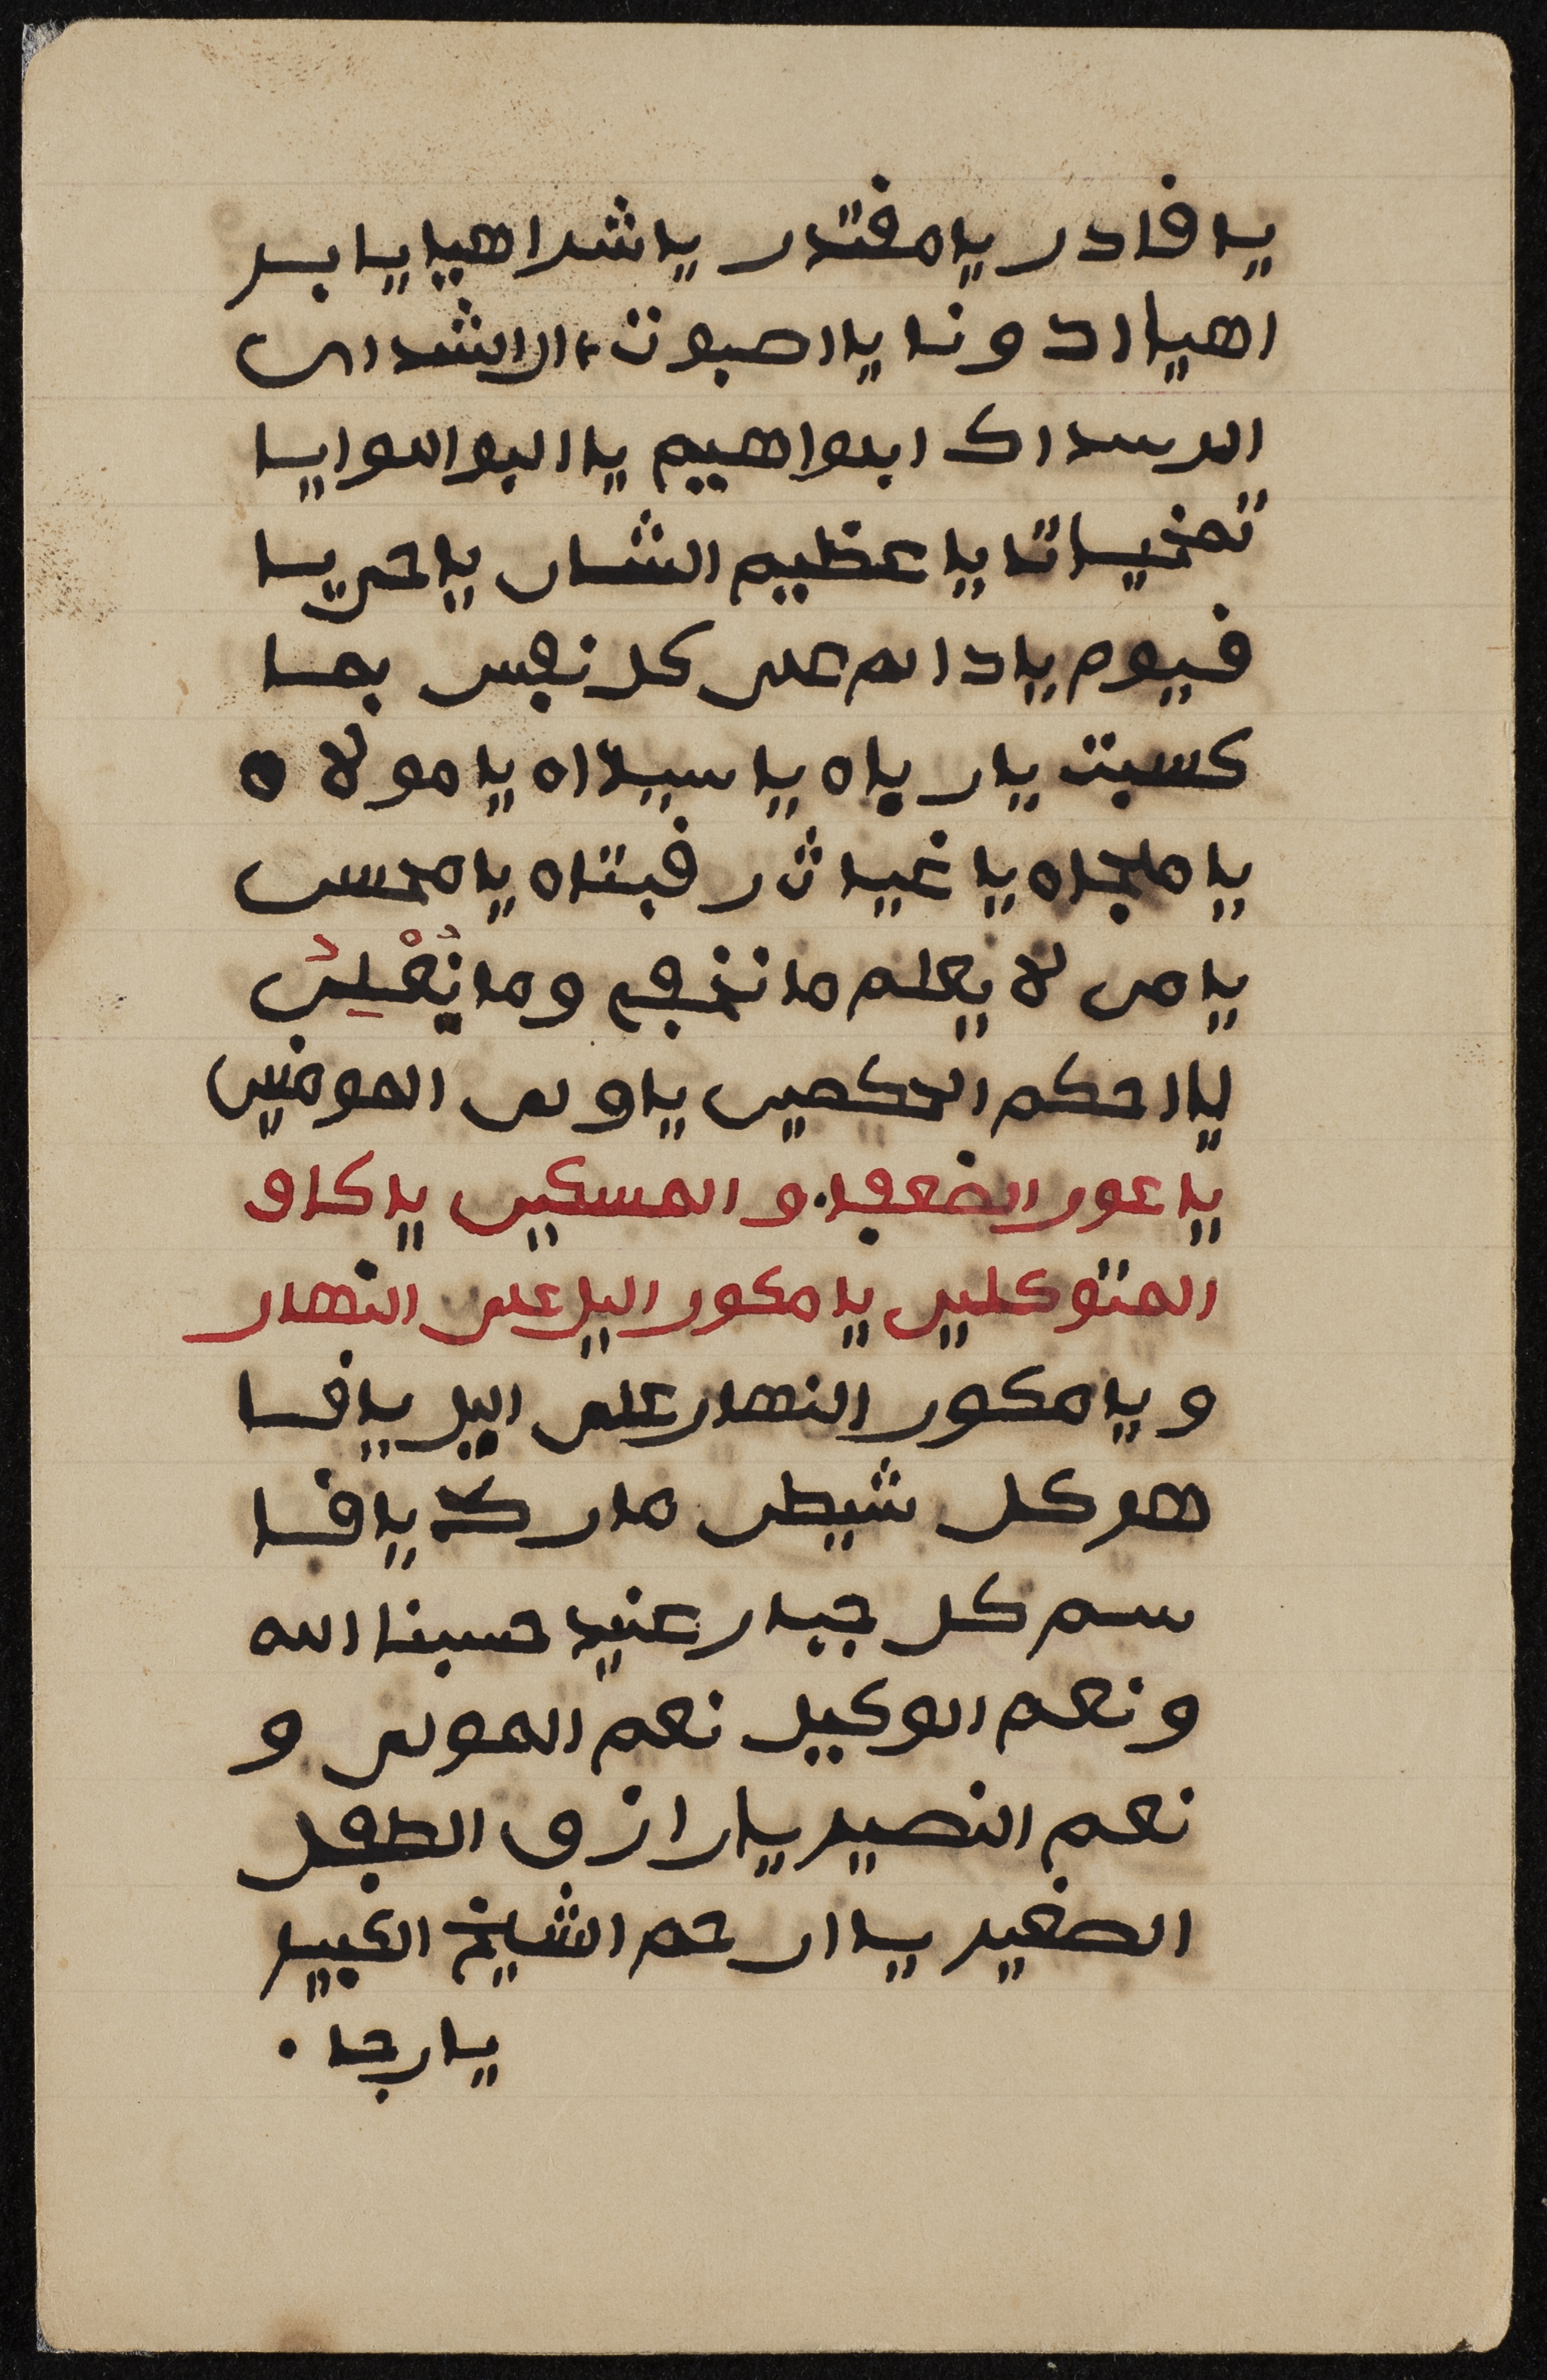 يا قادر يا مقتدر يا شراهيا يا بر
اهيا ادونا يا اصبوت ال اشداى
ال سداى ابراهيم يا البو اللوا يا
تخيساتا يا عظيم الشان يا حى يا
قيوم يا دائم على كل نفس بما
كسبت يا رباه يا سيداه يا مولاه
يا ملجاه يا غياث رقبتاه يا محسن
يا من لا يعلم ما نخفي وما نُعْلِنُ
يا احكم الحكمين يا ولى المومنين
يا عون الضعفا و المسكين يا كاف
المتوكلين يا مكور اليل على النهار
و يا مكور النهار على اليل يا قا
هر كل شيطن مارد يا قا
سم كل جبار عنيد حسبنا الله
و نعم الوكيل نعم المولى و
نعم النصير يا رازق الطفل
الصغير يا ارحم الشيخ الكبير
يا رجا